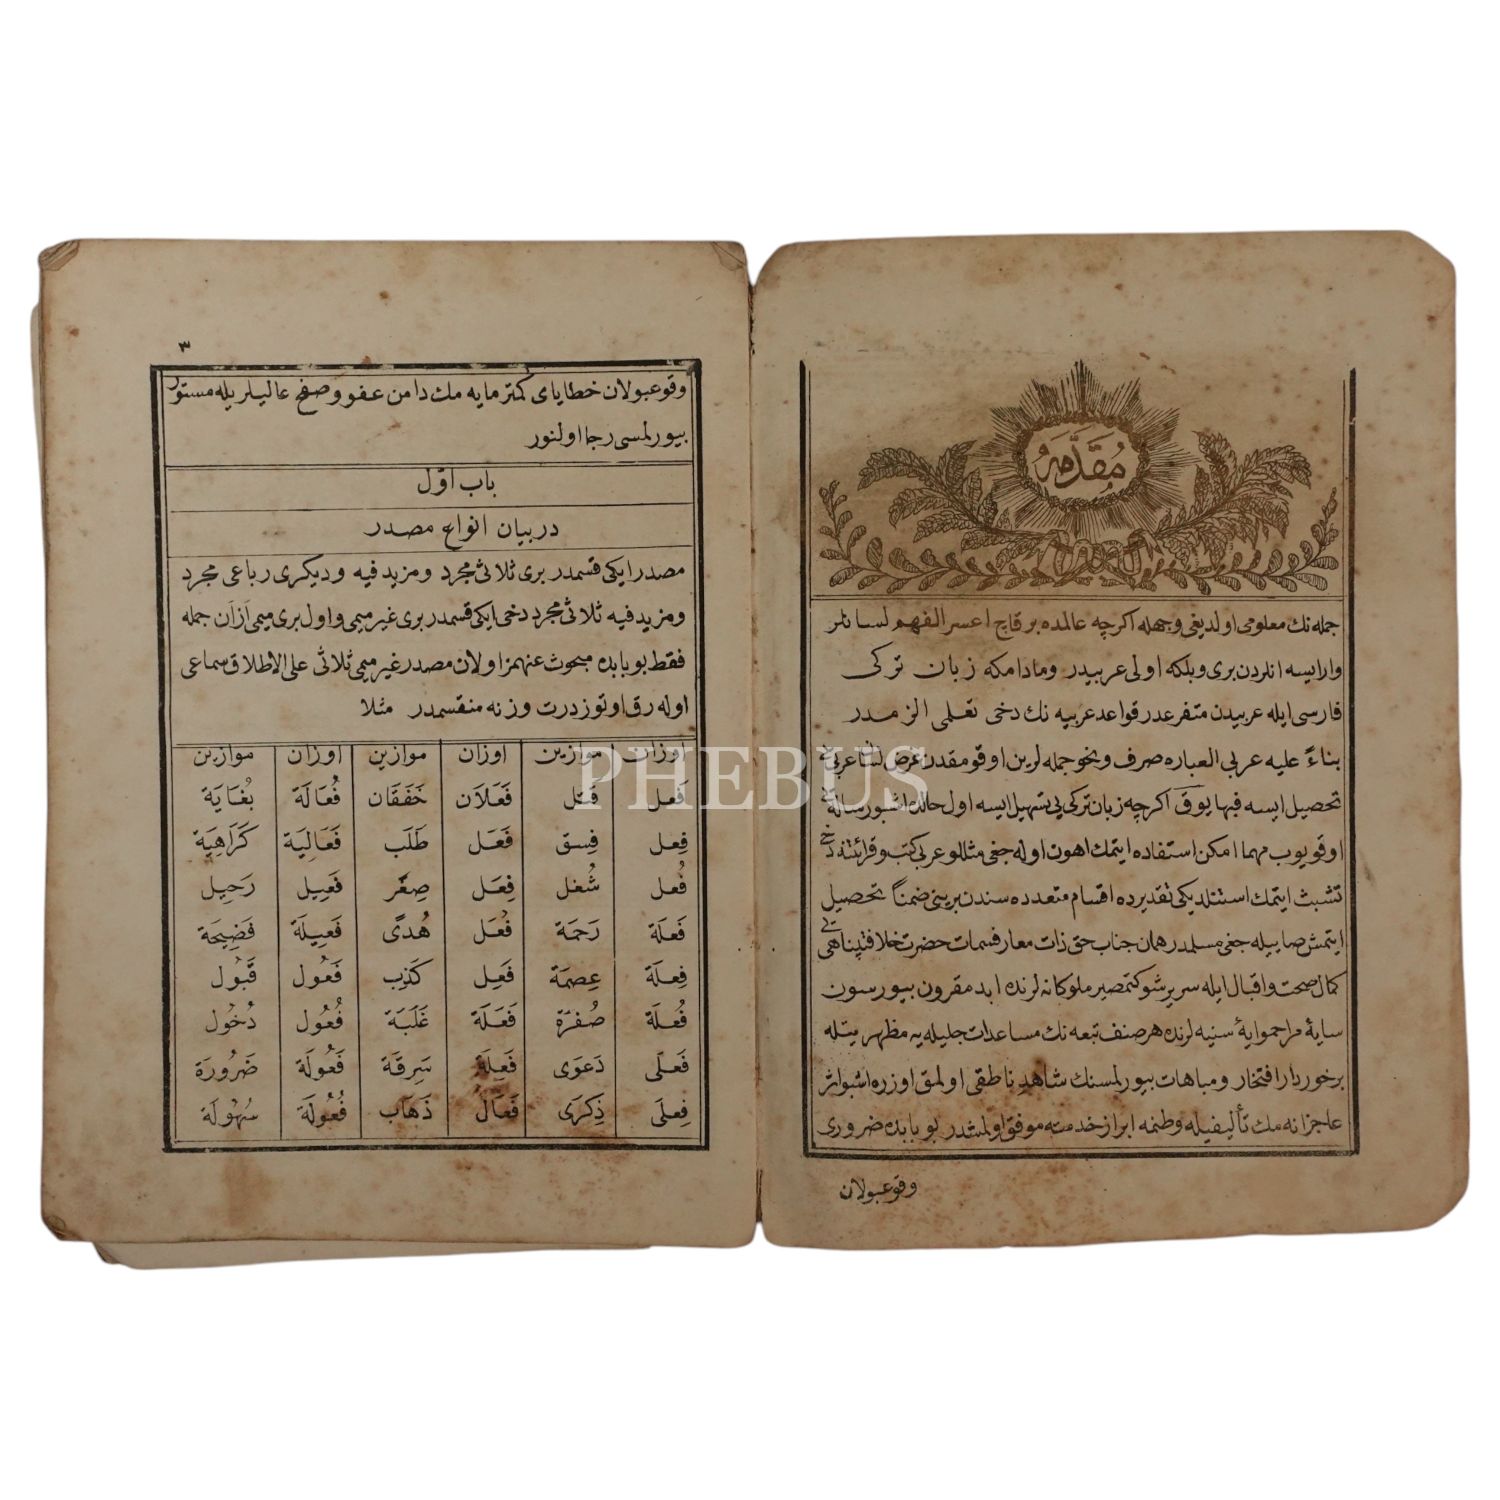 مُقَدَّمَه
جمله نك معلومى اولديغى وجهله اكرچه عالمده برقاچ اعسر الفهم لسانلر
وارايسه انلردن برى وبلكه اولى عربيدر ومادامكه زبان تركى
فارسى ايله عربيدن متفرعدر قواعد عربيه نك دخى تعلمى الزمدر
بناءً عليه عربى العباره صرف ونحو جمله لرين اوقومقدن غرض لسان عربى يى
تحصيل ايسه فبها يوق اكرچه زبان تركى يى تسهيل ايسه اول حالده اشبو رساله يى
اوقويوب مهما امكن استفاده ايتمك اهون اوله جغى مثللو عربى كتب وقرائتنه دخى
تشبث ايتمك استنلديكى تقديرده اقسام متعدده سندن بريني ضمناً تحصيل
ايتمش صاييله جغى مسلمدر همان جناب حق ذات معارفسمات حضرت خلافتپناهى يى
كمال صحت واقبال ايله سرير شوكتمصير ملوكانه لرنده ابد مقرون بيورسون
سايۀ مراحموايۀ سنيه لرنده هر صنف تبعه نك مساعدات جليله يه مظهريتله
برخوردار افتخار ومباهات بيورلمسنك شاهد ناطقى اولمق اوزره اشبو اثر
عاجزانه مك تأليفيله وطنمه ابراز خدمته موفق اولمشدر بو بابده ضرورى
وقوعبولان
٣
وقوعبولان خطاياى كمتر مايه مك دامن عفو وصفح عاليلريله مستور
بيورلمسى رجا اولنور
باب اوّل
در بيان انواع مصدر
مصدر ايكى قسمدر برى ثلاثى مجرد ومزيد فيه وديكرى رباعى مجرد
ومزيد فيه ثلاثى مجرد دخى ايكى قسمدر برى غير ميمى واول برى ميمى ازان جمله
فقط بو بابده مبحوث عنهمز اولان مصدر غير ميمى ثلاثى على الاطلاق سماعى
اوله رق اوتوز درت وزنه منقسمدر مثلا
اوزان موازين اوزان موازين اوزان موازين
فَعل قَتل فَعَلَان خَفَقَان فُعَالَة بُغَايَة
فِعل فِسق فَعَل طَلَب فَعَالِيَة كَرَاهِيَة
فُعل شُغل فِعَل صِغَر فَعِيل رَحِيل
فَعلَة رَحمَة فُعَل هُدًى فَعِيلَة فَضِيحَة
فِعلَة عِصمَة فَعِل كَذِب فَعُول قَبُول
فُعلَة صُفرَة فَعَلَة غَلَبَة فُعُول دُخُول
فَعلَى دَعوَى فَعِلَة سَرِقَة فَعُولَة ضَرُورَة
فِعلَى ذِكرَى فَعَال ذَهَاب فُعُولَة سُهُولَة
PHEBUS